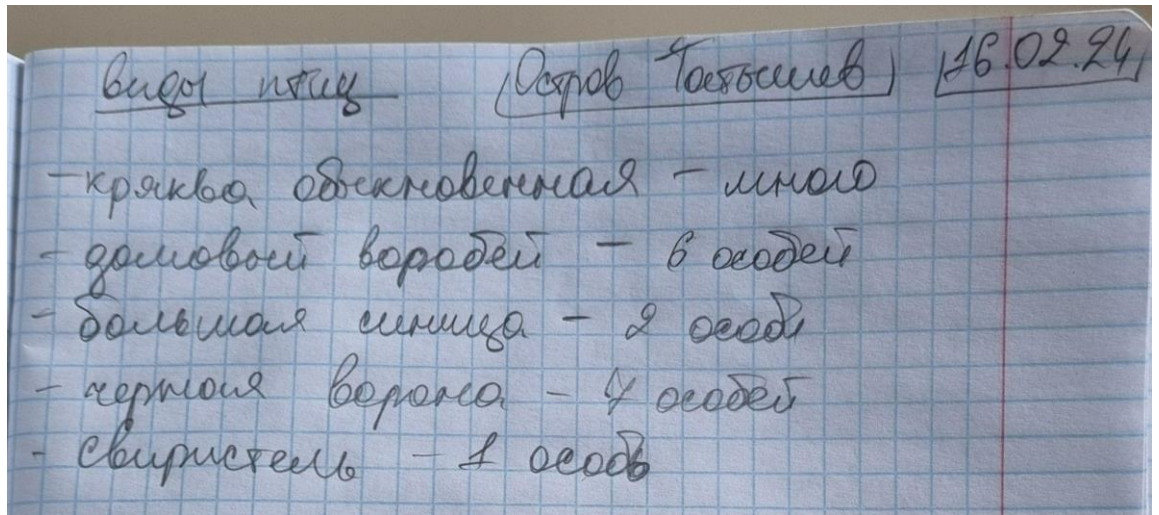 виды птиц (Остров Татышев) 16.02.24
- кряква обыкновенная - много
- домовый воробей - 6 особей
- большая синица - 2 особи
- черная ворона - 7 особей
- свиристель - 1 особь